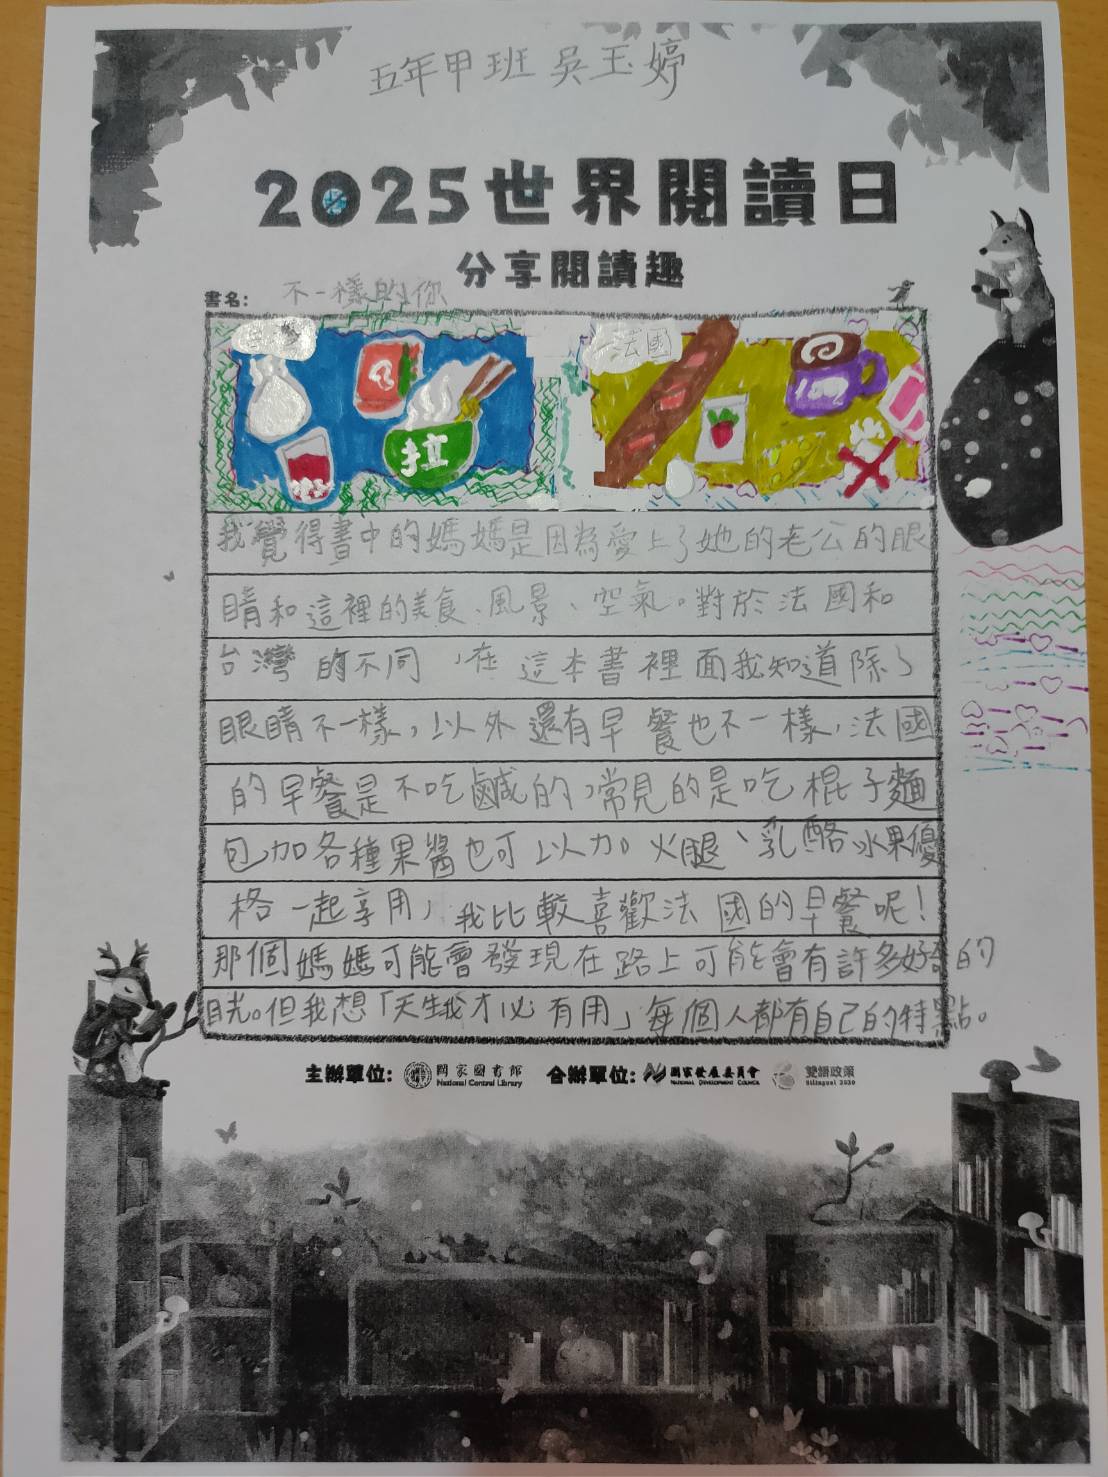 五年甲班 吳玉婷
2025世界閱讀日
分享閱讀趣
書名: 不一樣的你
法國
拉
我覺得書中的媽媽是因為愛上了她的老公的眼
睛和這裡的美食、風景、空氣。對於法國和
台灣的不同,在這本書裡面我知道除了
眼睛不一樣,以外還有早餐也不一樣,法國
的早餐是不吃鹹的,常見的是吃棍子麵
包,加各種果醬也可以加。火腿、乳酪、水果優
格一起享用,我比較喜歡法國的早餐呢!
那個媽媽可能會發現在路上可能會有許多好奇的
目光。但我想「天生我才必有用」每個人都有自己的特點。
主辦單位: 國家圖書館 合辦單位: 國家發展委員會 雙語政策
National Central Library NATIONAL DEVELOPMENT COUNCIL Bilingual 2030